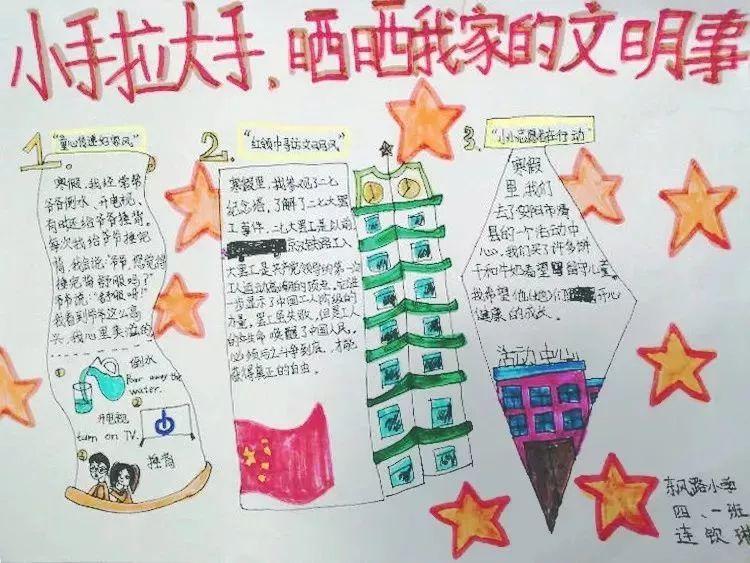 小手拉大手，晒晒我家的文明事
1.
"童心传递好家风"
寒假，我经常帮
爷爷倒水、开电视，
有时还给爷爷捶背。
每次我给爷爷捶完
背，我会说："爷爷，您觉得
捶完背舒服吗？"
爷爷说："舒服呀！"
我看到爷爷这么高
兴，我心里美滋的
倒水
Pour away the
water.
开电视
turn on TV.
捶背
2.
"红领巾寻访文明风"
寒假里，我参观了二七
纪念塔，了解了二七大罢
工事件，二七大罢工是以前
京汉铁路工人
大罢工是共产党领导的第一次
工人运动高潮的顶点，它进一
步显示了中国工人阶级的
力量，罢工虽失败，但是工人
的生命唤醒了中国人民，
必须与之斗争到底，才能
获得真正的自由。
3.
"小小志愿者在行动"
寒假
里，我们
去了安阳市滑
县的一个活动中
心，我们买了许多饼
干和牛奶看望留守儿童。
我希望他(她)们开心
健康的成长。
活动中心
东风路小学
四、一班
连钦琳